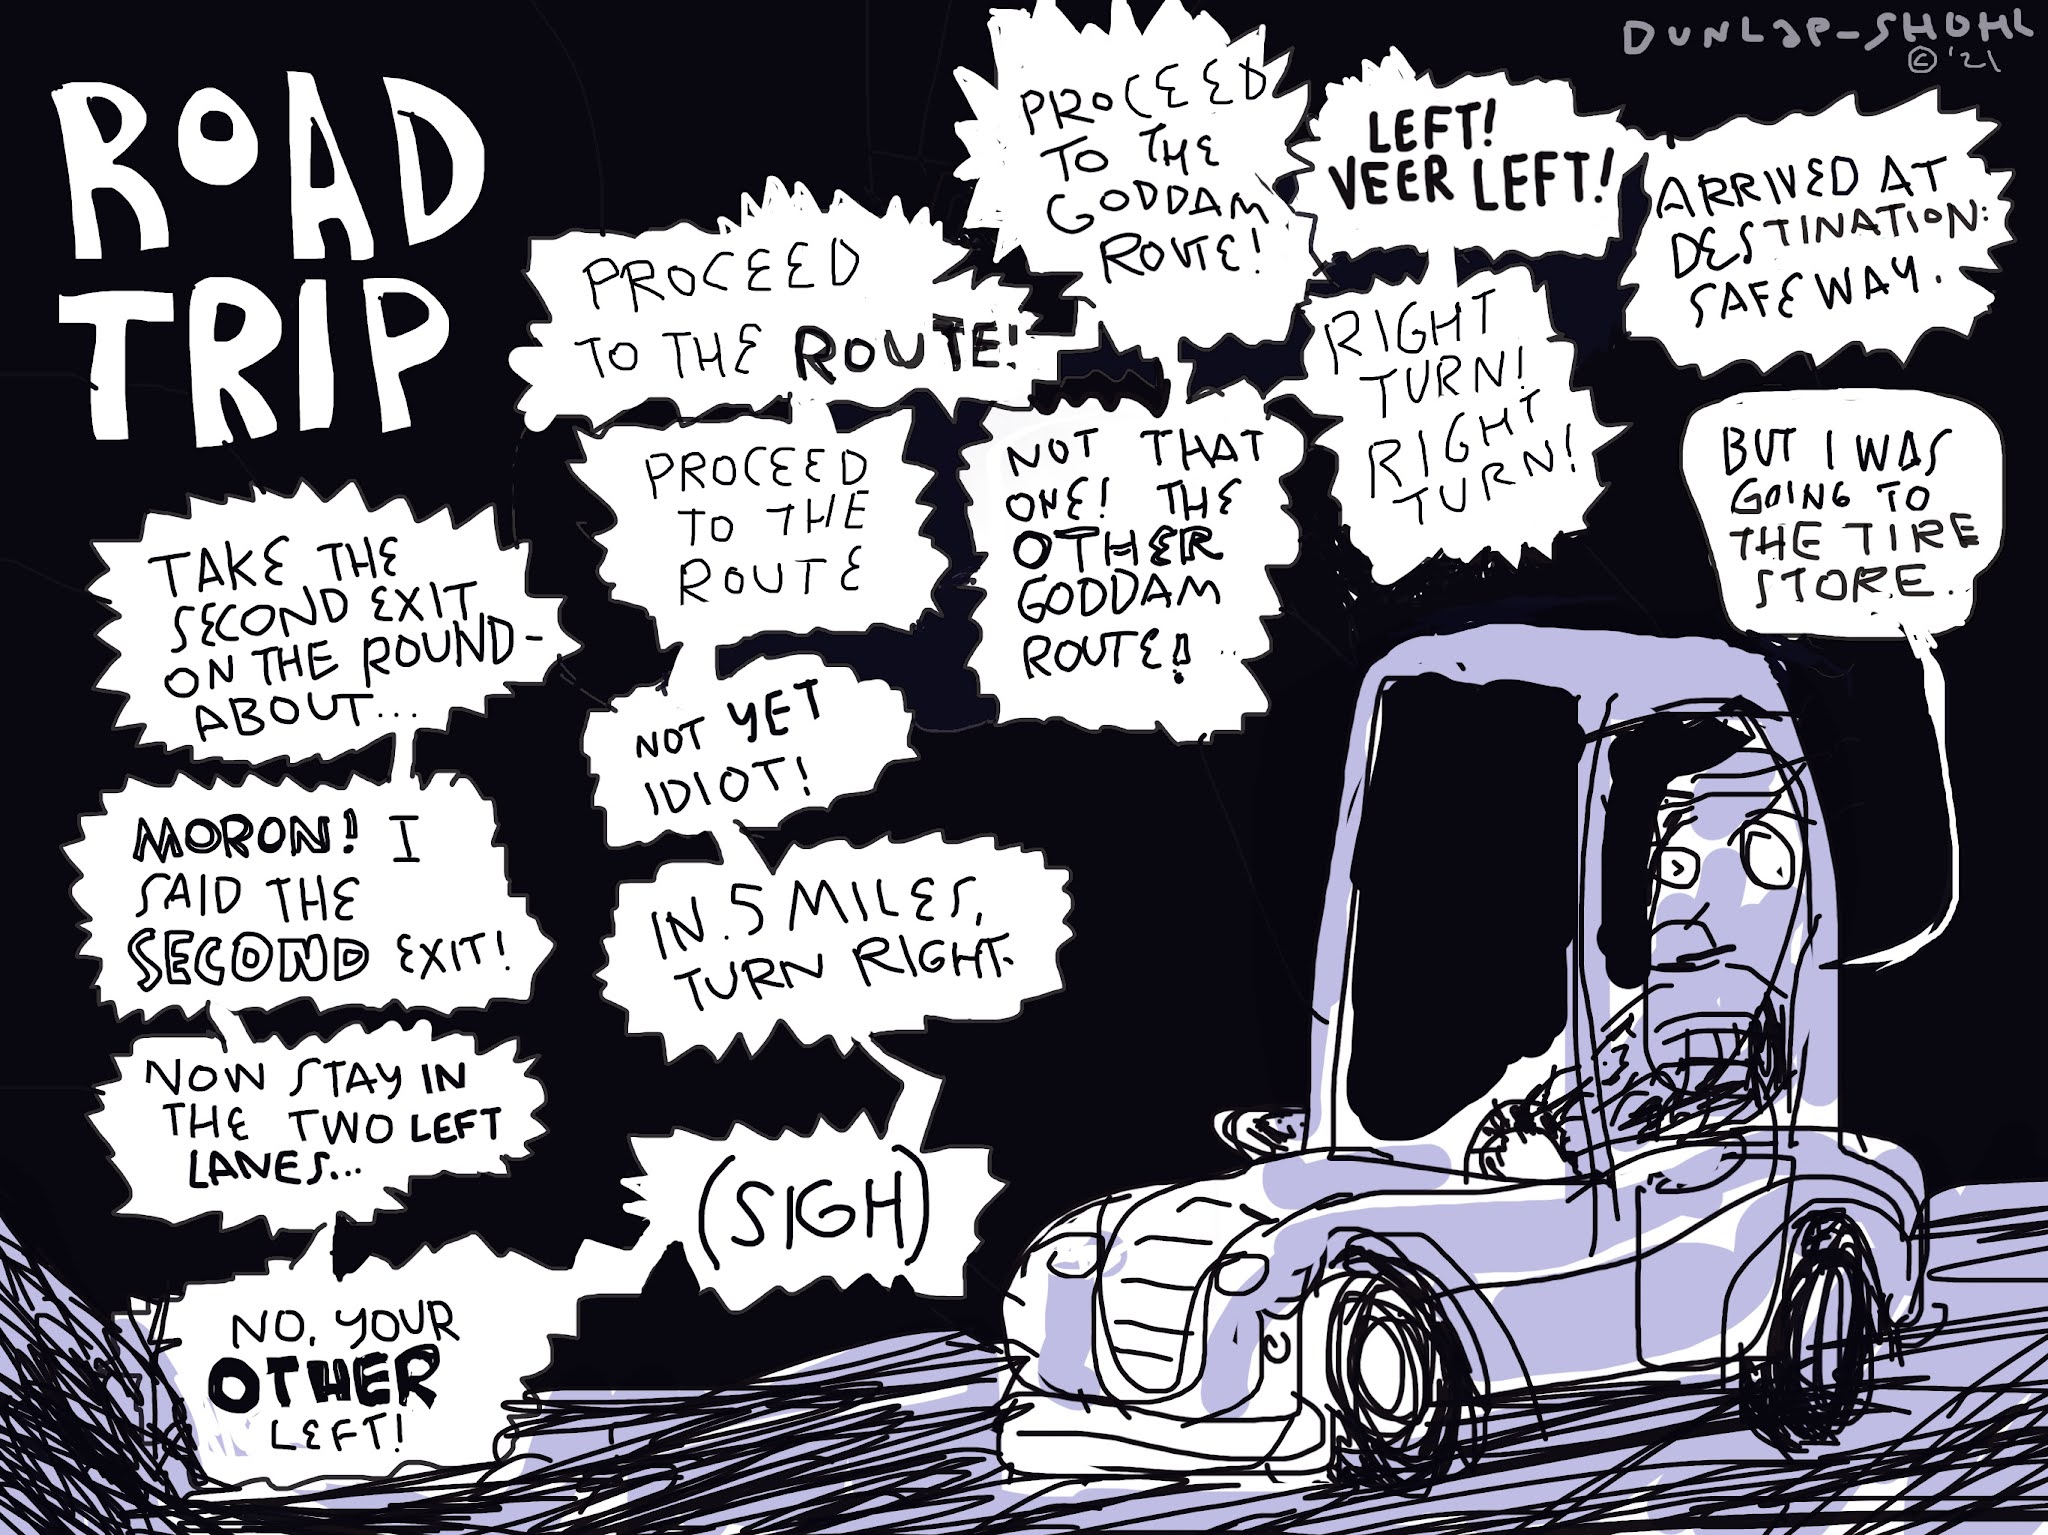 ROAD
TRIP
DUNLAP-SHOHL
© '21
TAKE THE
SECOND EXIT
ON THE ROUND-
ABOUT...
MORON! I
SAID THE
SECOND EXIT!
NOW STAY IN
THE TWO LEFT
LANES...
NO, YOUR
OTHER
LEFT!
(SIGH)
IN .5 MILES,
TURN RIGHT.
NOT YET
IDIOT!
PROCEED
TO THE
ROUTE
PROCEED
TO THE ROUTE!
PROCEED
TO THE
GODDAM
ROUTE!
NOT THAT
ONE! THE
OTHER
GODDAM
ROUTE!
LEFT!
VEER LEFT!
RIGHT
TURN!
RIGHT
TURN!
ARRIVED AT
DESTINATION:
SAFEWAY.
BUT I WAS
GOING TO
THE TIRE
STORE..